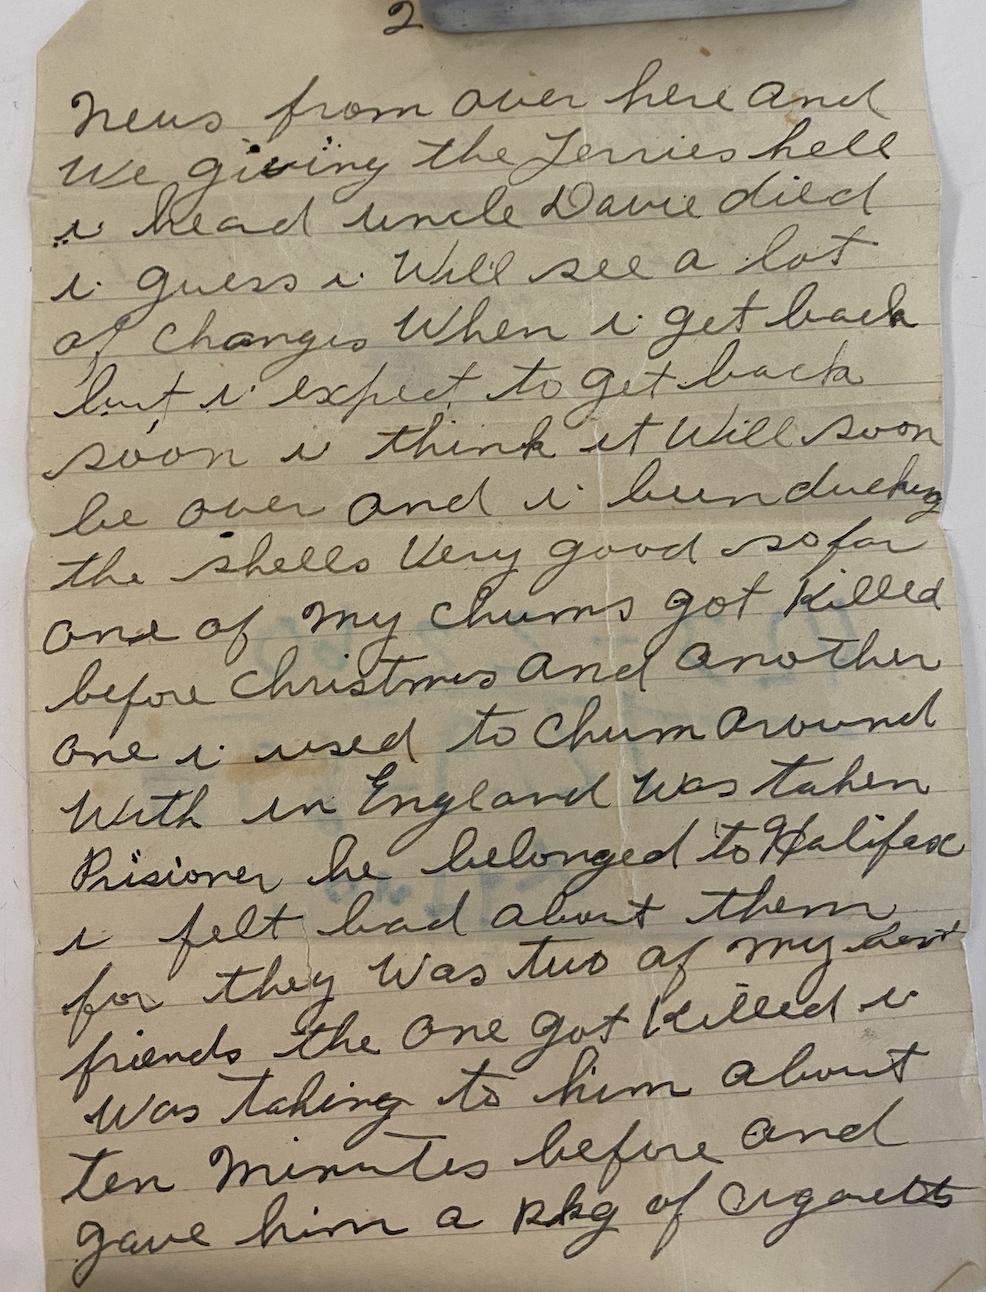 2
News from over here and
We giving the Jerries hell
i head uncle Davie died
i guess i Will see a lot
of changes When i get back
but i expect to get back
soon i think it Will soon
be over and i bun ducking
the shells Very good so far
one of my chums got killed
before christmas and another
one i used to chum around
With in England Was taken
Prisioner he belonged to Halifax
i felt bad about them
for they Was two of my best
friends the one got killed i
Was taking to him about
ten Minutes before and
gave him a pkg of cigaretts